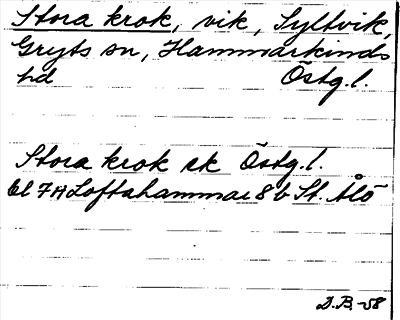 Stora krok, vik, Syltvik,
Gryts sn, Hammarkinds
hd Östg.l.
Stora krok ek Östg.l.
bl 7H Loftahammar 8b St. Älö
D.B.-58